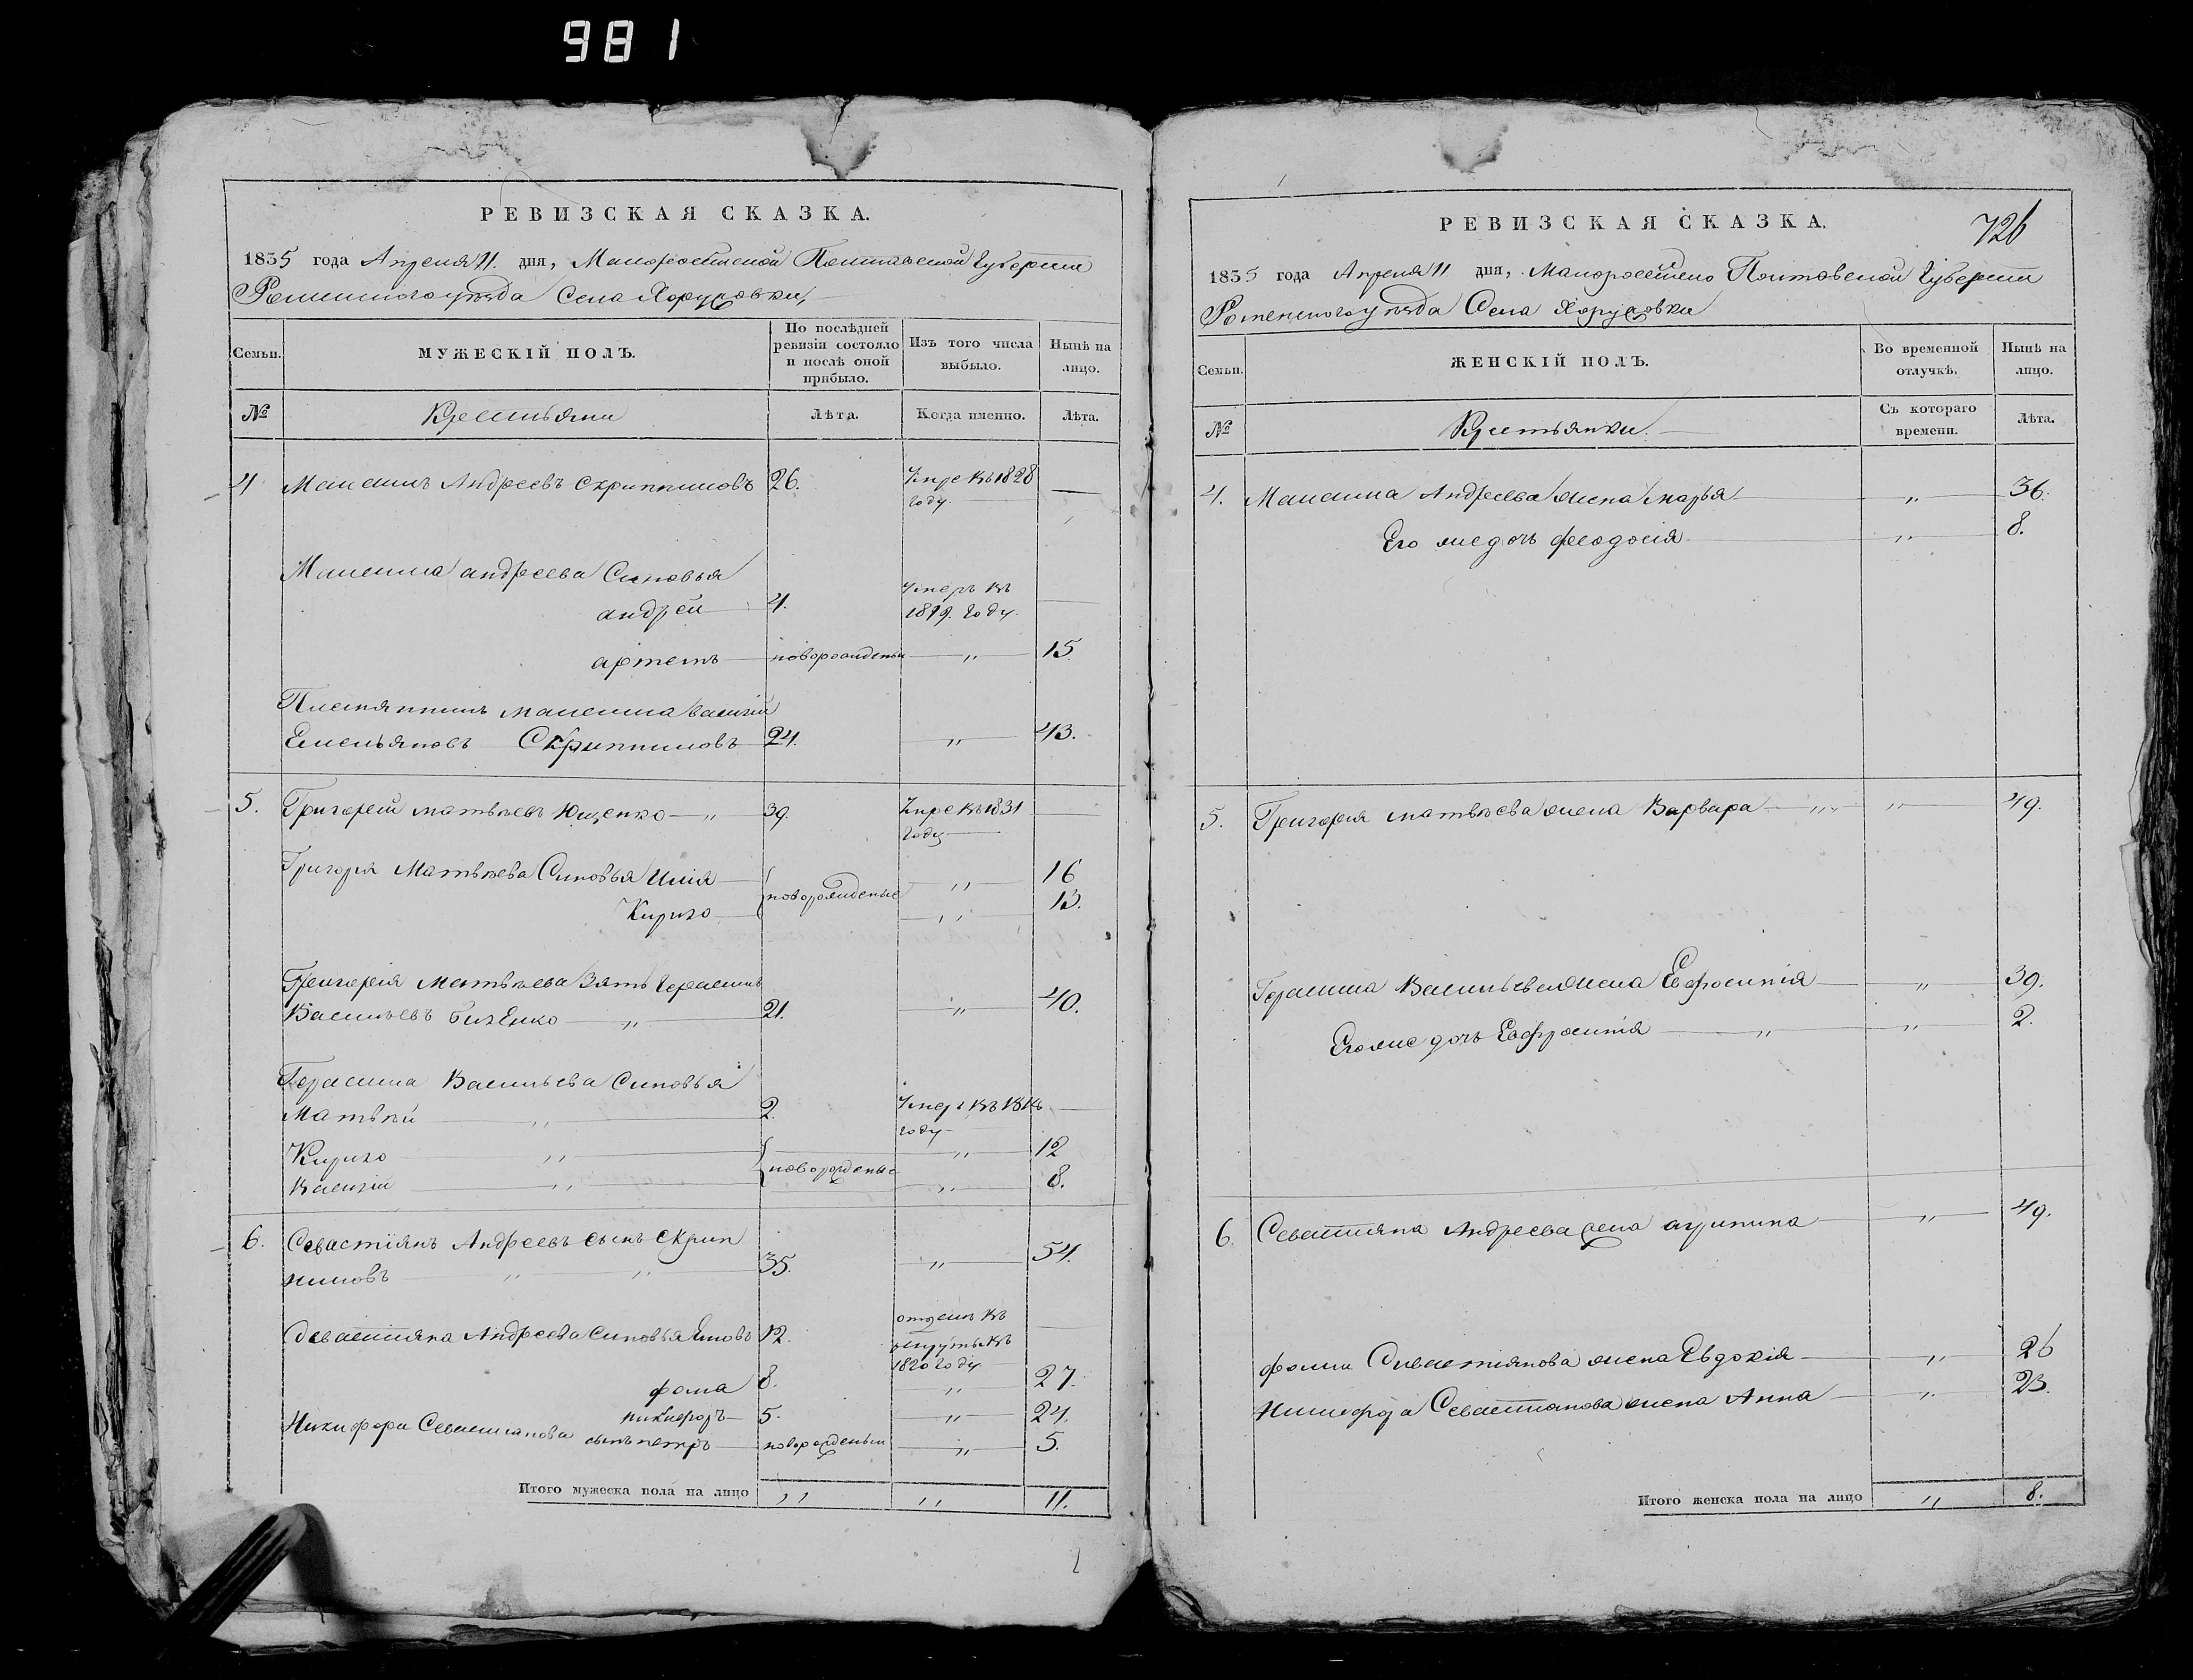 981
РЕВИЗСКАЯ СКАЗКА.
1835 года Апреля 11. дня, Малороссийской Полтавской Губернии
Роменского уѣзда Села Хоружовки,
Семьи. МУЖЕСКІЙ ПОЛЪ. По послѣдней ревизіи состояло и послѣ оной прибыло. Изъ того числа выбыло. Нынѣ на лицо.
№ Крестьяни Лѣта. Когда именно. Лѣта.
4 Максимъ Андреевъ Скрипниковъ 26. Умре въ 1828 году
Максима андреева Синовья
андрей 4. Умеръ въ 1819. году.
артемъ новорожденый „ 15
Племянникъ максима василій
Емельяновъ Скрипниковъ 24. „ 43.
5. Григорей матвѣевъ Ющенко „ 39. Умре въ 1831 году
Григоря Матвѣева Синовья Илія „ 16
Кирило новорожденые „ 13.
Григорія Матвѣева Зять Герасимъ
Васильевъ „ 21. „ 40.
Герасима Васильева Синовья
Матвѣй „ 2. Умеръ въ году
Кирило „ „ 12
Василій „ новорожденые „ 8.
6. Севастіянъ Андреевъ сынъ Скрип
никовъ „ „ 35. „ 54.
Севастіяна Андреева Синовья 12. въ 1820 году
фома 8. „ 27.
никифоръ 5. „ 24.
Никифора Севастианова сынъ петръ новорожденый „ 5.
Итого мужеска пола на лицо „ „ 11.
726
РЕВИЗСКАЯ СКАЗКА.
1835 года Апреля 11 дня, Малоросийско Полтавской Губернии
Роменского уѣзда Села Хоружовки
Семьи. ЖЕНСКІЙ ПОЛЪ. Во временной отлучкѣ. Нынѣ на лицо.
№ Крестьянки. Съ котораго времени. Лѣта.
4. Максима Андреева жена марья „ 36.
Его же дочь феодосія „ 8.
5. Григорія матвѣева жена Варвара „ „ 49.
Герасима Васильева жена Ефросинія „ 39.
Его же дочь Евфросинія „ „ 2.
6. Севастияна Андреева жена агрипина „ 49.
фоми Сивастіянова жена Евдокія „ 26
Никифора Севастианова жена Анна „ 23.
Итого женска пола на лицо „ 8.